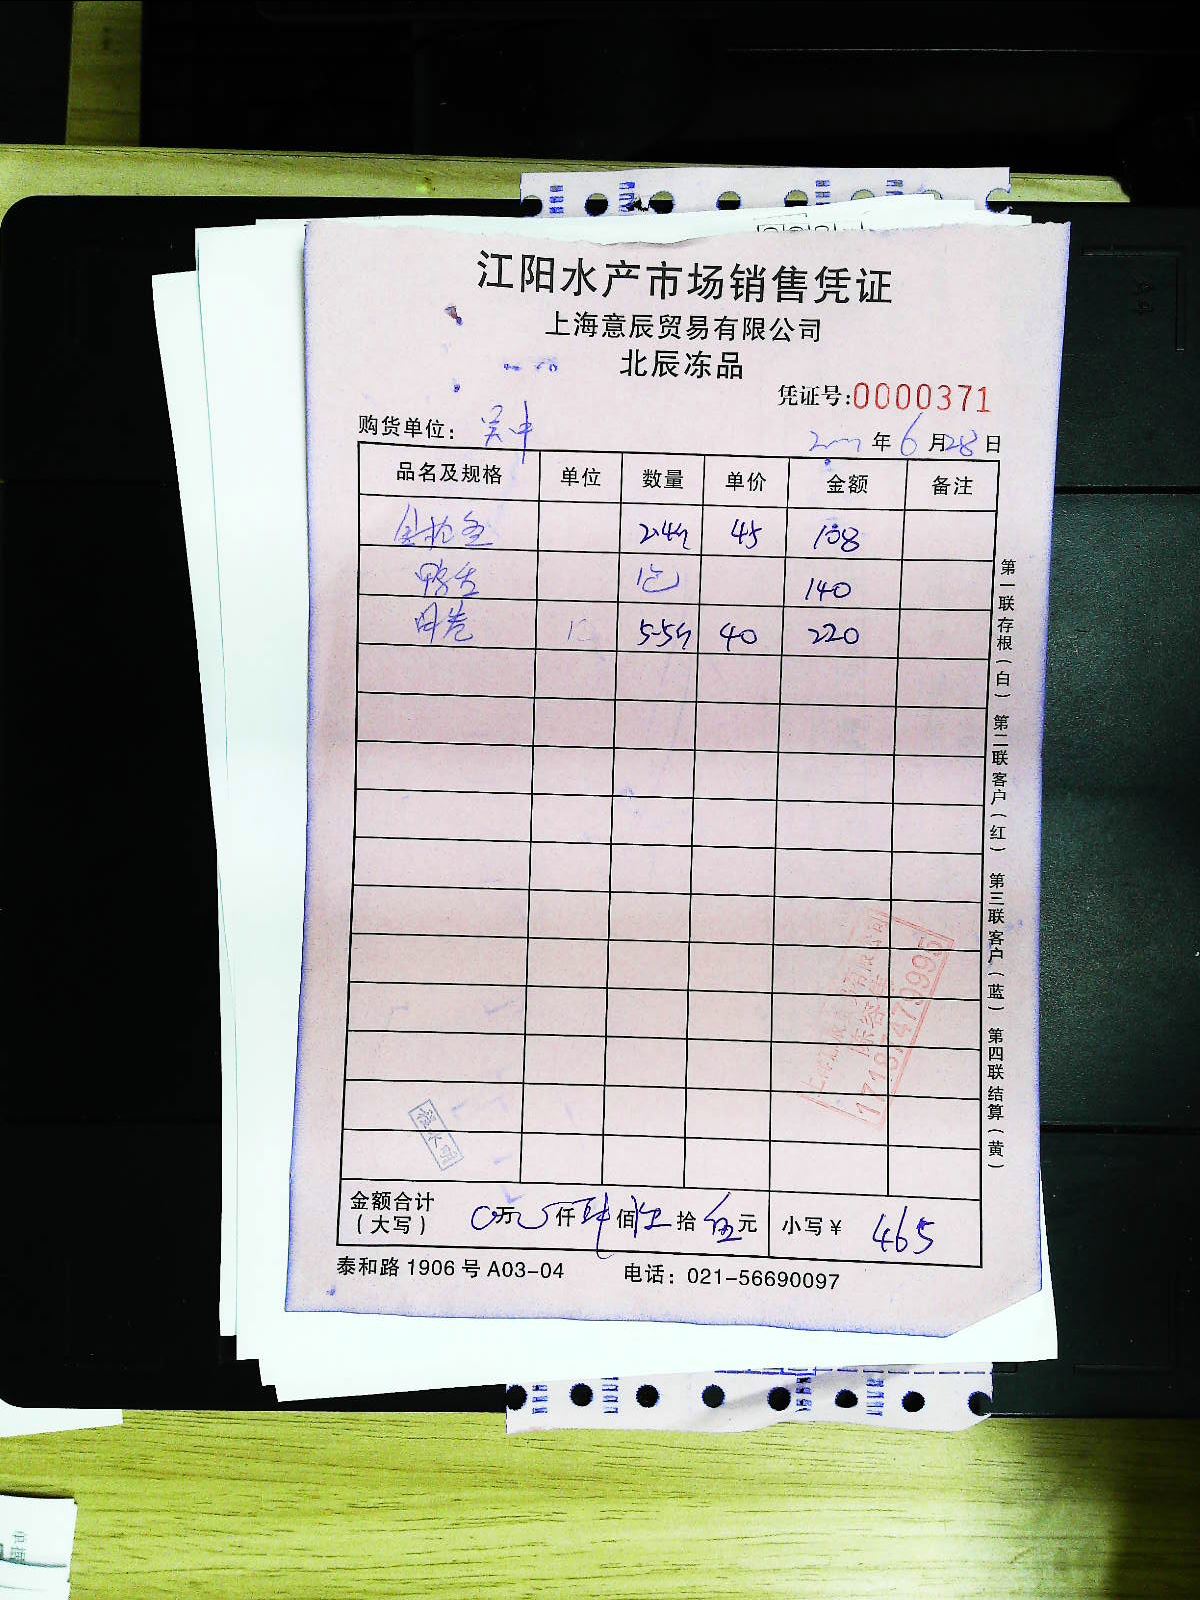 江阳水产市场销售凭证
上海意辰贸易有限公司
北辰冻品
凭证号:0000371
购货单位: 吴中
年 6 月 28 日
品名及规格 单位 数量 单价 金额 备注
金枪鱼 2.4 45 108
鸭舌 1包 140
5.5 40 220
金额合计
(大写) 万 仟 肆 佰 陆 拾 伍 元 小写¥ 465
泰和路 1906 号 A03-04 电话: 021-56690097
第一联存根(白) 第二联客户(红) 第三联客户(蓝) 第四联结算(黄)